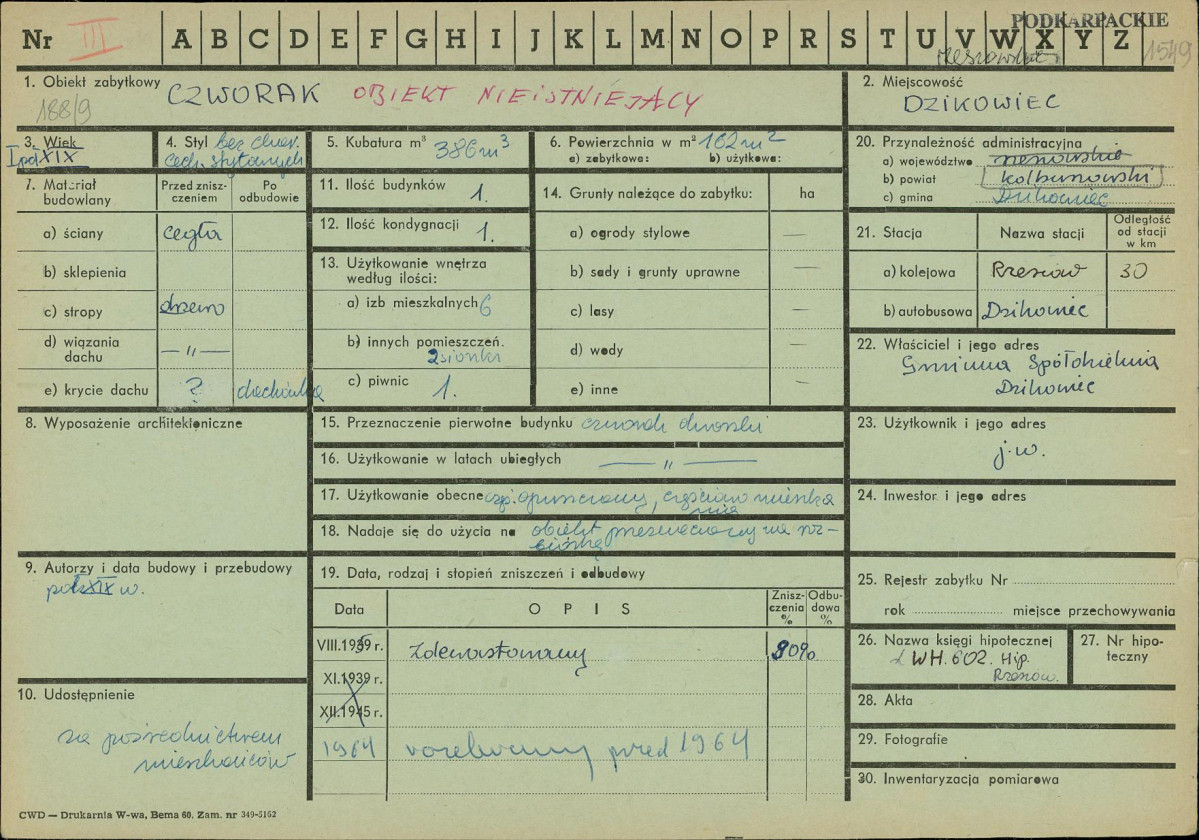 PODKARPACKIE
Nr III A B C D E F G H I J K L M N O P R S T U V W X Y Z
rzeszowskie 1549
1. Obiekt zabytkowy CZWORAK OBIEKT NIEISTNIEJĄCY
188/9
2. Miejscowość
DZIKOWIEC
3. Wiek
I poł XIX
4. Styl bez char.
cech stylowych
5. Kubatura m³ 386 m³
6. Powierzchnia w m² 162 m²
a) zabytkowa: b) użytkowa:
20. Przynależność administracyjna
a) województwo rzeszowskie
b) powiat kolbuszowski
c) gmina Dzikowiec
7. Materiał budowlany
Przed znisz-czeniem
Po odbudowie
a) ściany cegła
b) sklepienia
c) stropy drzewo
d) wiązania dachu — „ —
e) krycie dachu ? dachówka
11. Ilość budynków 1.
12. Ilość kondygnacji 1.
13. Użytkowanie wnętrza według ilości:
a) izb mieszkalnych 6
b) innych pomieszczeń.
2 sionki
c) piwnic 1.
14. Grunty należące do zabytku: ha
a) ogrody stylowe —
b) sady i grunty uprawne —
c) lasy —
d) wody —
e) inne —
21. Stacja Nazwa stacji Odległość od stacji w km
a) kolejowa Rzeszów 30
b) autobusowa Dzikowiec
22. Właściciel i jego adres
Gminna Spółdzielnia
Dzikowiec
8. Wyposażenie architektoniczne
15. Przeznaczenie pierwotne budynku czworak dworski
16. Użytkowanie w latach ubiegłych — „ —
17. Użytkowanie obecne cz. opuszczony, częściowo mieszka
nia
18. Nadaje się do użycia na obiekt przeznaczony na roz-
biórkę
23. Użytkownik i jego adres
j.w.
24. Inwestor i jego adres
9. Autorzy i data budowy i przebudowy
poł XIX w.
19. Data, rodzaj i stopień zniszczeń i odbudowy
Data OPIS Znisz-czenia % Odbu-dowa %
VIII.1939 r. Zdewastowany 90%
XI.1939 r.
XII.1945 r.
1964 rozebrany przed 1964
25. Rejestr zabytku Nr
rok miejsce przechowywania
26. Nazwa księgi hipotecznej
LWH. 602. Hip.
Rzeszów.
27. Nr hipo-teczny
10. Udostępnienie
za pośrednictwem
mieszkańców
28. Akta
29. Fotografie
30. Inwentaryzacja pomiarowa
CWD — Drukarnia W-wa, Bema 60. Zam. nr 349-5162